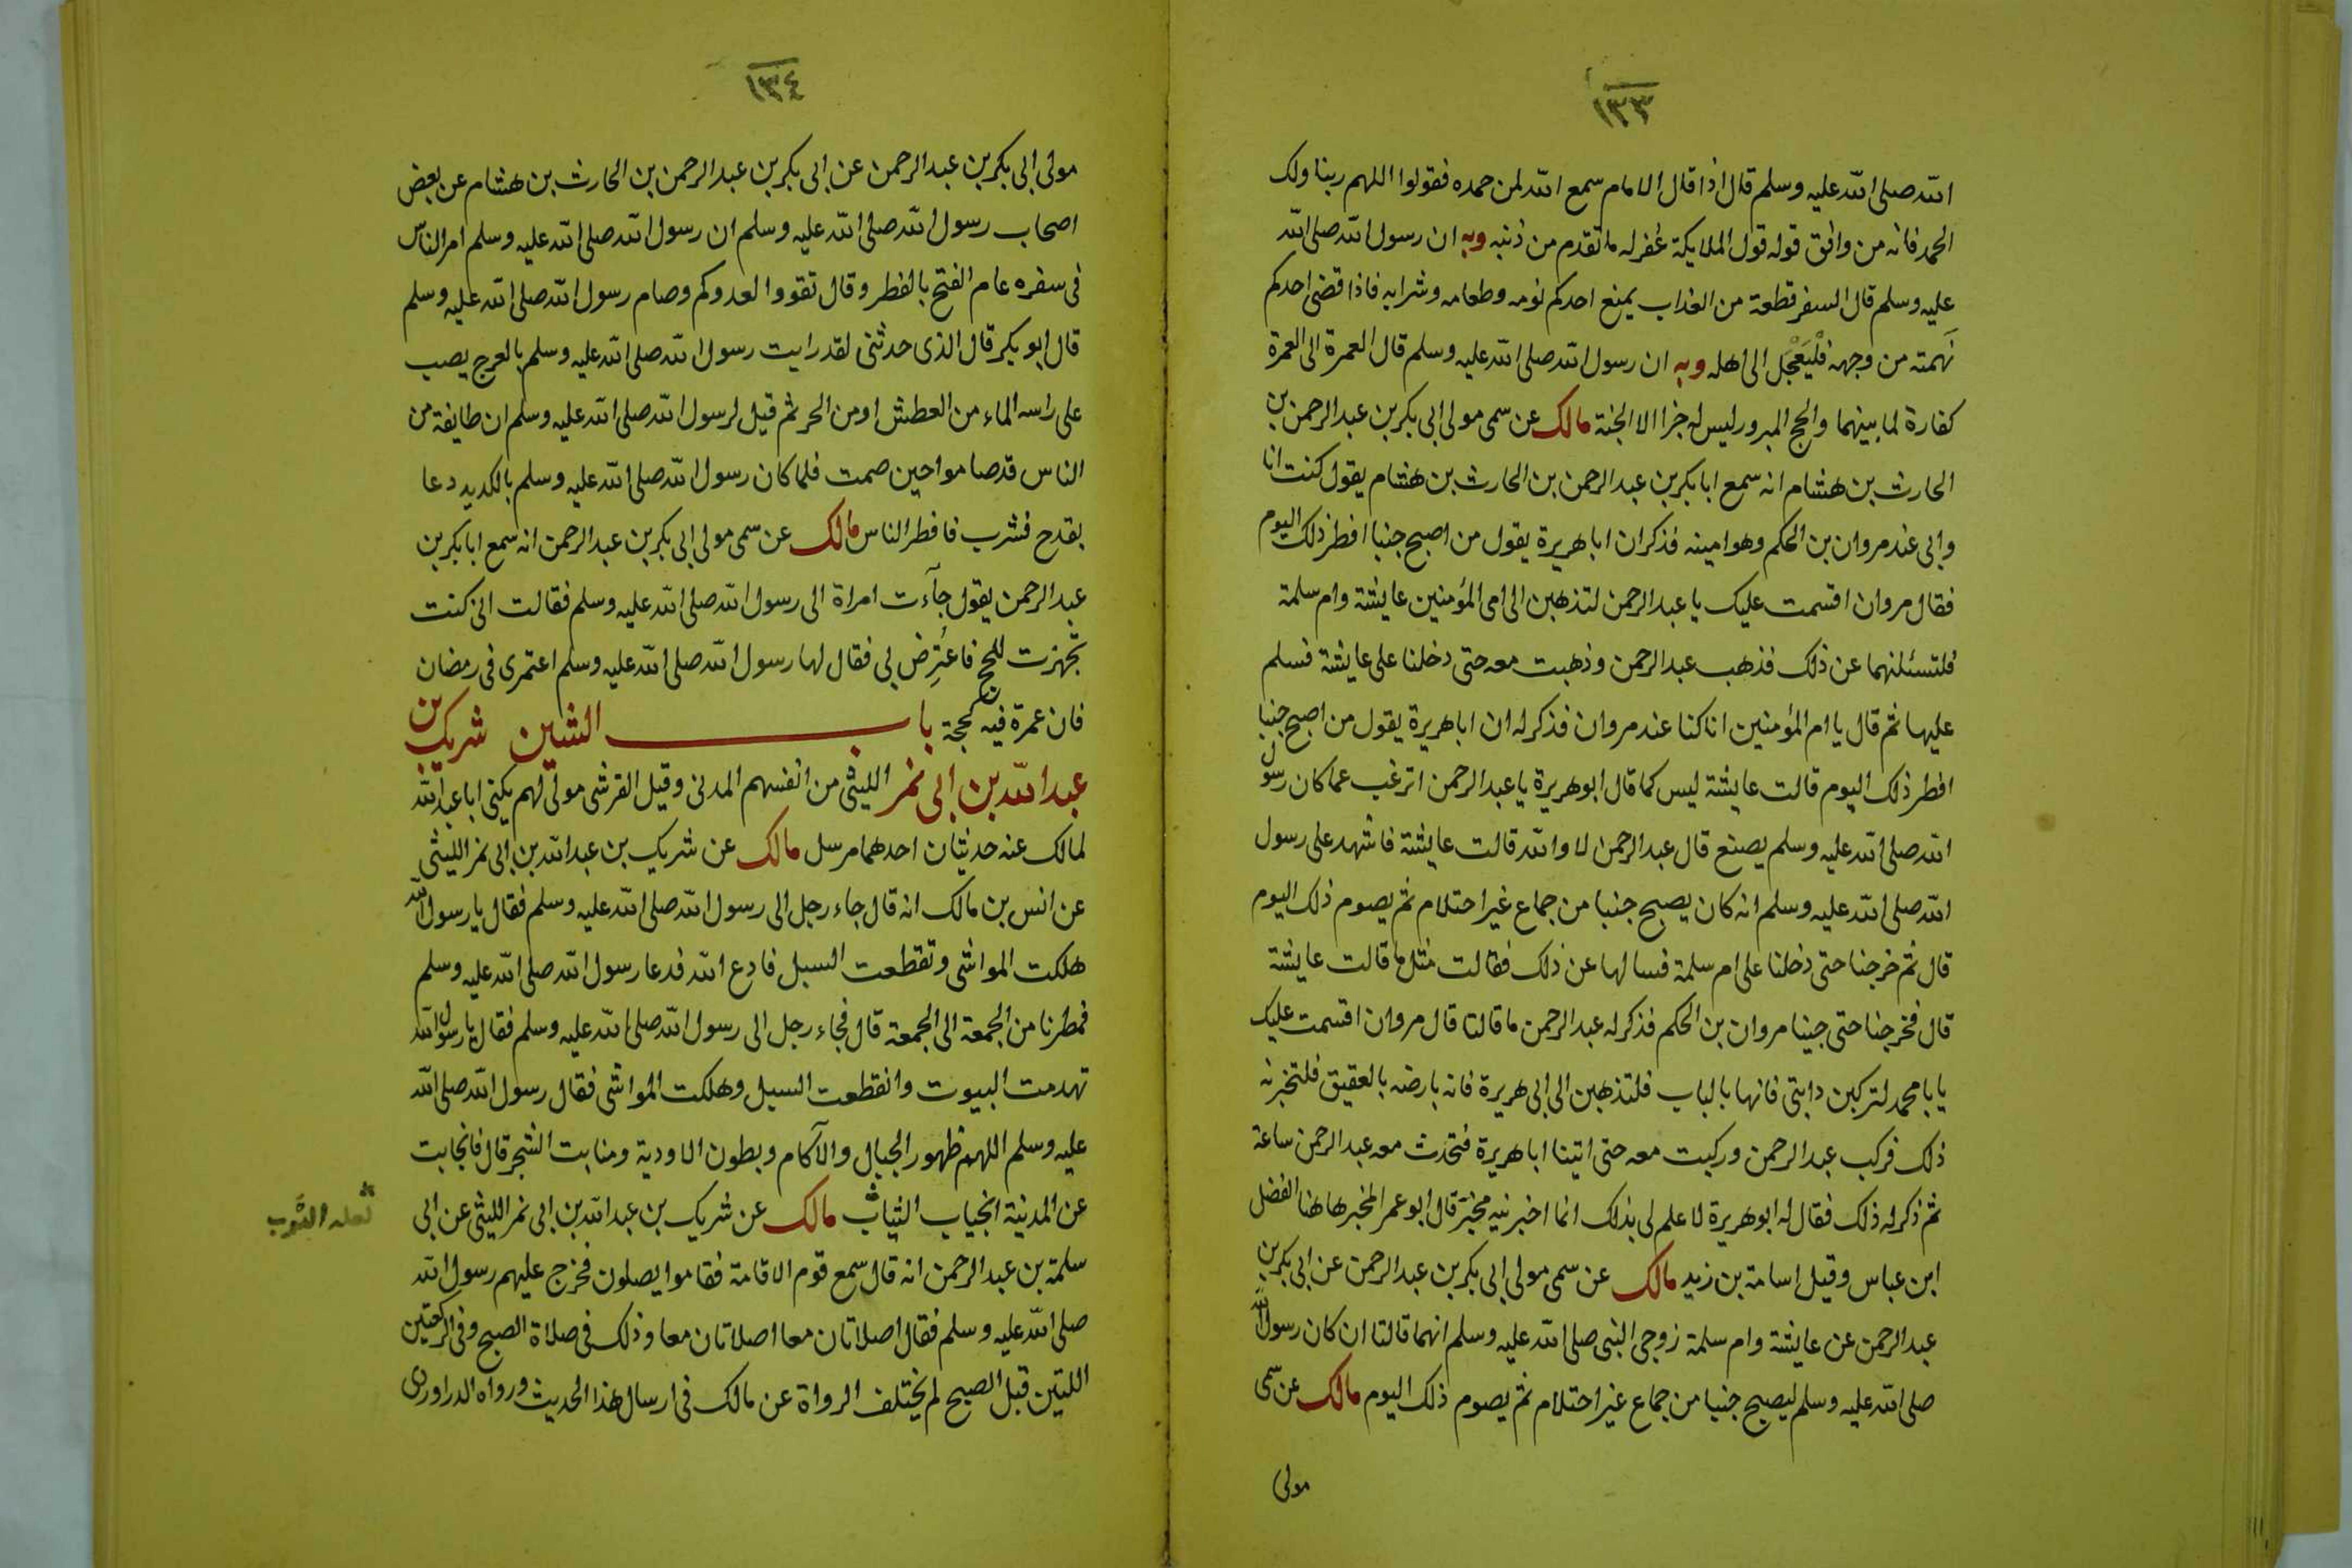 ١٣٣
الله صلى الله عليه وسلم قال اذا قال الامام سمع الله لمن حمده فقولوا اللهم ربنا ولك
الحمد فانه من وافق قوله قول الملايكة غفر له ما تقدم من ذنبه وبه ان رسول الله صلى الله
عليه وسلم قال السفر قطعة من العذاب يمنع احدكم نومه وطعامه وشرابه فاذا قضى احدكم
نَهمته من وجهه فلْيَعْجَل الى اهله وبه ان رسول الله صلى الله عليه وسلم قال العمرة الى العمرة
كفارة لما بينهما والحج المبرور ليس له جزا الا الجنة مالك عن سمى مولى ابى بكر بن عبد الرحمن بن
الحارث بن هشام انه سمع ابا بكر بن عبد الرحمن بن الحارث بن هشام يقول كنت انا
وابى عند مروان بن الحكم وهو امينه فذكر ان ابا هريرة يقول من اصبح جنبا افطر ذلك اليوم
فقال مروان اقسمت عليك يا عبد الرحمن لتذهبن الى امى المؤمنين عايشة وام سلمة
فلتسئلنهما عن ذلك فذهب عبد الرحمن وذهبت معه حتى دخلنا على عايشة فسلم
عليها ثم قال يا ام المؤمنين انا كنا عند مروان فذكر له ان ابا هريرة يقول من اصبح جنبا
افطر ذلك اليوم قالت عايشة ليس كما قال ابو هريرة يا عبد الرحمن اترغب عما كان رسول
الله صلى الله عليه وسلم يصنع قال عبد الرحمن لا والله قالت عايشة فاشهد على رسول
الله صلى الله عليه وسلم انه كان يصبح جنبا من جماع غير احتلام ثم يصوم ذلك اليوم
قال ثم خرجنا حتى دخلنا على ام سلمة فسالها عن ذلك فقالت مثل ما قالت عايشة
قال فخرجنا حتى جينا مروان بن الحكم فذكر له عبد الرحمن ما قالتا قال مروان اقسمت عليك
يا با محمد لتركبن دابتى فانها بالباب فلتذهبن الى ابى هريرة فانه بارضه بالعقيق فلتخبرنه
ذلك فركب عبد الرحمن وركبت معه حتى اتينا ابا هريرة فتحدث معه عبد الرحمن ساعة
ثم ذكر له ذلك فقال له ابو هريرة لا علم لى بذلك انما اخبرنيه مخبر قال ابو عمر المخبر هاهنا الفضل
ابن عباس وقيل اسامة بن زيد مالك عن سمى مولى ابى بكر بن عبد الرحمن عن ابى بكر بن
عبد الرحمن عن عايشة وام سلمة زوجى النبى صلى الله عليه وسلم انهما قالتا ان كان رسول الله
صلى الله عليه وسلم ليصبح جنبا من جماع غير احتلام ثم يصوم ذلك اليوم مالك عن سمى
مولى
١٣٤
مولى ابى بكر بن عبد الرحمن عن ابى بكر بن عبد الرحمن بن الحارث بن هشام عن بعض
اصحاب رسول الله صلى الله عليه وسلم ان رسول الله صلى الله عليه وسلم امر الناس
فى سفره عام الفتح بالفطر وقال تقووا لعدوكم وصام رسول الله صلى الله عليه وسلم
قال ابو بكر قال الذى حدثنى لقد رايت رسول الله صلى الله عليه وسلم بالعرج يصب
على راسه الماء من العطش او من الحر ثم قيل لرسول الله صلى الله عليه وسلم ان طايفة من
الناس قد صاموا حين صمت فلما كان رسول الله صلى الله عليه وسلم بالكديد دعا
بقدح فشرب فافطر الناس مالك عن سمى مولى ابى بكر بن عبد الرحمن انه سمع ابا بكر بن
عبد الرحمن يقول جآءت امراة الى رسول الله صلى الله عليه وسلم فقالت انى كنت
تجهزت للحج فاعتُرِض لى فقال لها رسول الله صلى الله عليه وسلم اعتمرى فى رمضان
فان عمرة فيه كحجة باب الشين شريك بن
عبد الله بن ابى نمر الليثى من انفسهم المدنى وقيل القرشى مولى لهم يكنى ابا عبد الله
لمالك عنه حديثان احدهما مرسل مالك عن شريك بن عبد الله بن ابى نمر الليثى
عن انس بن مالك انه قال جاء رجل الى رسول الله صلى الله عليه وسلم فقال يا رسول الله
هلكت المواشى وتقطعت السبل فادع الله فدعا رسول الله صلى الله عليه وسلم
فمطرنا من الجمعة الى الجمعة قال فجاء رجل الى رسول الله صلى الله عليه وسلم فقال يا رسول الله
تهدمت البيوت وانقطعت السبل وهلكت المواشى فقال رسول الله صلى الله
عليه وسلم اللهم ظهور الجبال والآكام وبطون الاودية ومنابت الشجر قال فانجابت
عن المدينة انجياب الثياب مالك عن شريك بن عبد الله بن ابى نمر الليثى عن ابى
لعله الثوب
سلمة بن عبد الرحمن انه قال سمع قوم الاقامة فقاموا يصلون فخرج عليهم رسول الله
صلى الله عليه وسلم فقال اصلاتان معا اصلاتان معا وذلك فى صلاة الصبح وفى الركعتين
اللتين قبل الصبح لم يختلف الرواة عن مالك فى ارسال هذا الحديث ورواه الدراوردى